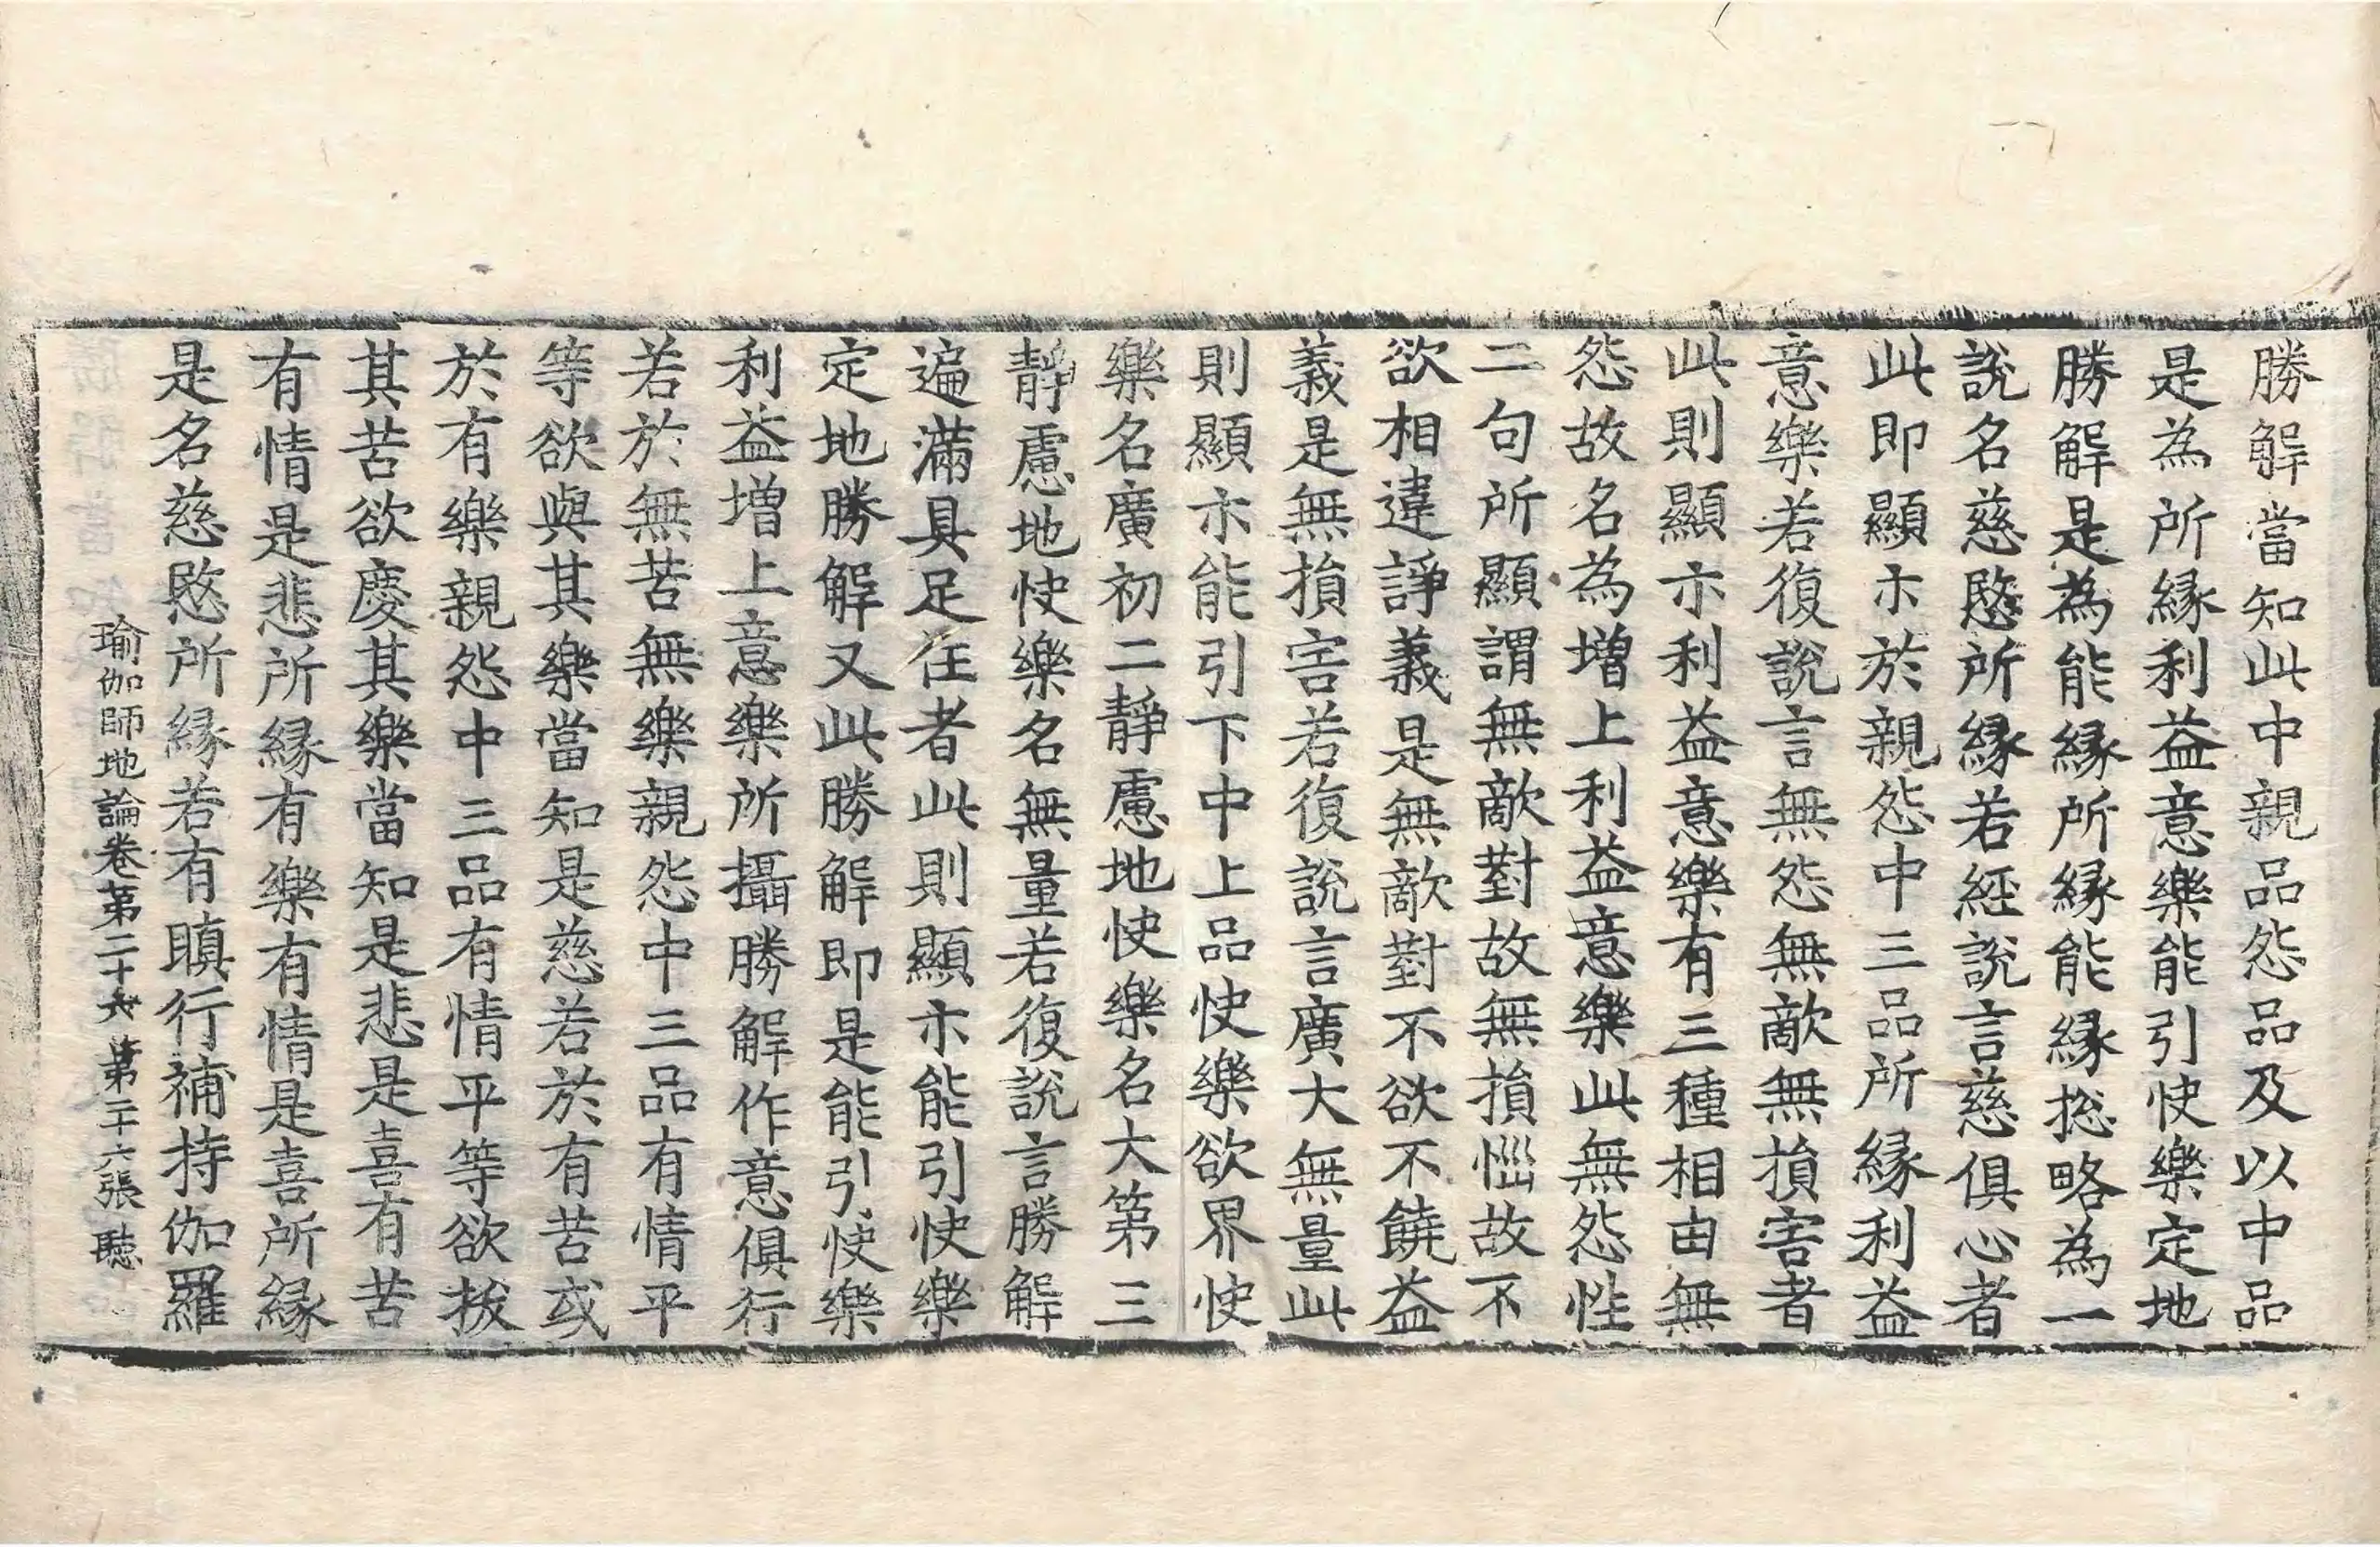 勝解當知此中親品怨品及以中品
是為所縁利益意樂能引快樂定地
勝解是為能縁所縁能縁捴略為一
說名慈愍所縁若經說言慈俱心者
此即顯示於親怨中三品所縁利益
意樂若復說言無怨無敵無損害者
此則顯示利益意樂有三種相由無
怨故名為增上利益意樂此無怨性
二句所顯謂無敵對故無損惱故不
欲相違諍義是無敵對不欲不饒益
義是無損害若復說言廣大無量此
則顯示能引下中上品快樂欲界快
樂名廣初二靜慮地快樂名大第三
靜慮地快樂名無量若復說言勝解
遍滿具足住者此則顯示能引快樂
定地勝解又此勝解即是能引快樂
利益增上意樂所攝勝解作意俱行
若於無苦無樂親怨中三品有情平
等欲與其樂當知是慈若於有苦或
於有樂親怨中三品有情平等欲拔
其苦欲慶其樂當知是悲是喜有苦
有情是悲所縁有樂有情是喜所縁
是名慈愍所縁若有瞋行補特伽羅
瑜伽師地論卷第二十六 第二十六張 聽